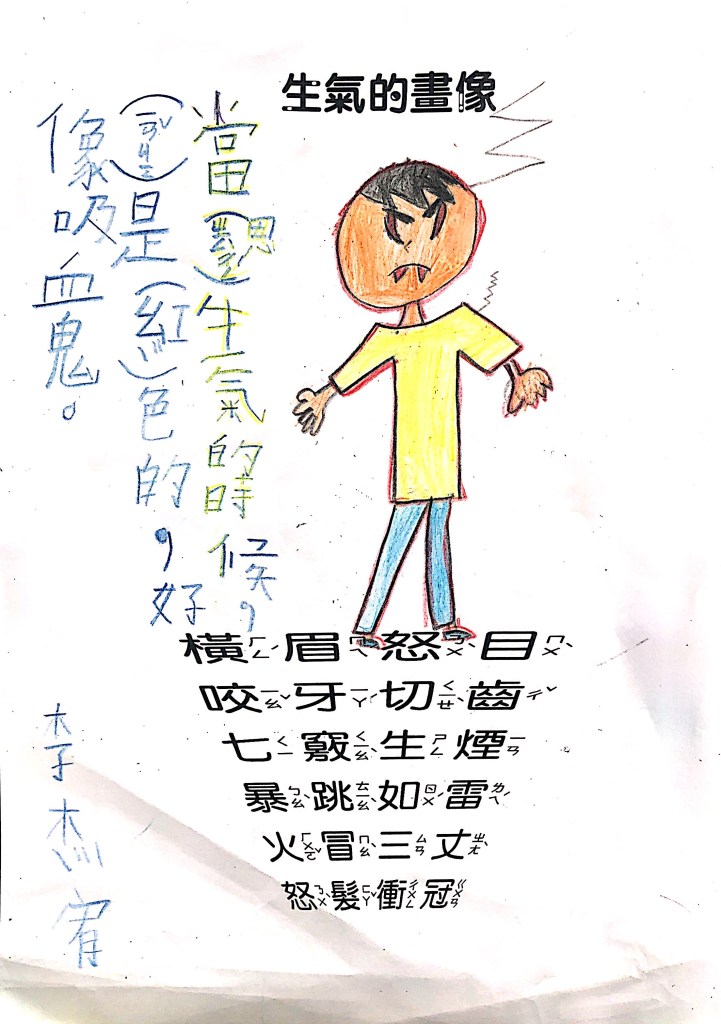 生氣的畫像
當( )生氣的時候，
( )是(紅)色的，好
像吸血鬼。
橫眉怒目
咬牙切齒
七竅生煙
暴跳如雷
火冒三丈
怒髮衝冠
李杰宥